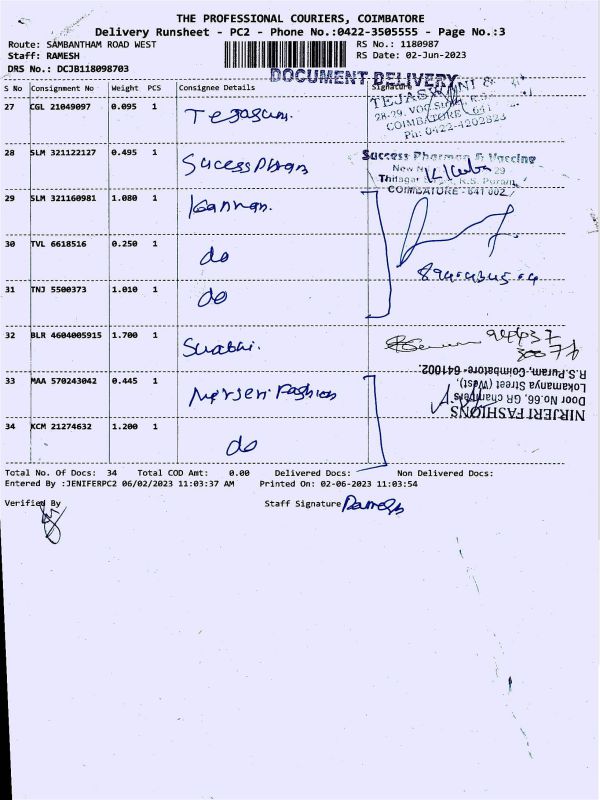 THE PROFESSIONAL COURIERS, COIMBATORE
Delivery Runsheet - PC2 - Phone No.:0422-3505555 - Page No.:3
Route: SAMBANTHAM ROAD WEST RS No.: 1180987
Staff: RAMESH RS Date: 02-Jun-2023
DRS No.: DCJB118098703
DOCUMENT DELIVERY
S No Consignment No Weight PCS Consignee Details Signature
27 CGL 21049097 0.095 1
COIMBATORE 641
Ph: 0422-4202823
28 SLM 321122127 0.495 1 Sucess Pharm
Success Pharma & Vaccine
New N 29
R.S. Puram,
COIMBATORE - 641 002
29 SLM 321160981 1.080 1 Kannan.
30 TVL 6618516 0.250 1 do
31 TNJ 5500373 1.010 1 do
32 BLR 4604005915 1.700 1
33 MAA 570243042 0.445 1 Nirjeri Fashion
NIRJERI FASHIONS
Door No.66, GR chambers,
Lokamanya Street (West),
R.S.Puram, Coimbatore- 641002.
34 KCM 21274632 1.200 1 do
Total No. Of Docs: 34 Total COD Amt: 0.00 Delivered Docs: Non Delivered Docs:
Entered By :JENIFERPC2 06/02/2023 11:03:37 AM Printed On: 02-06-2023 11:03:54
Verified By Staff Signature Ramesh